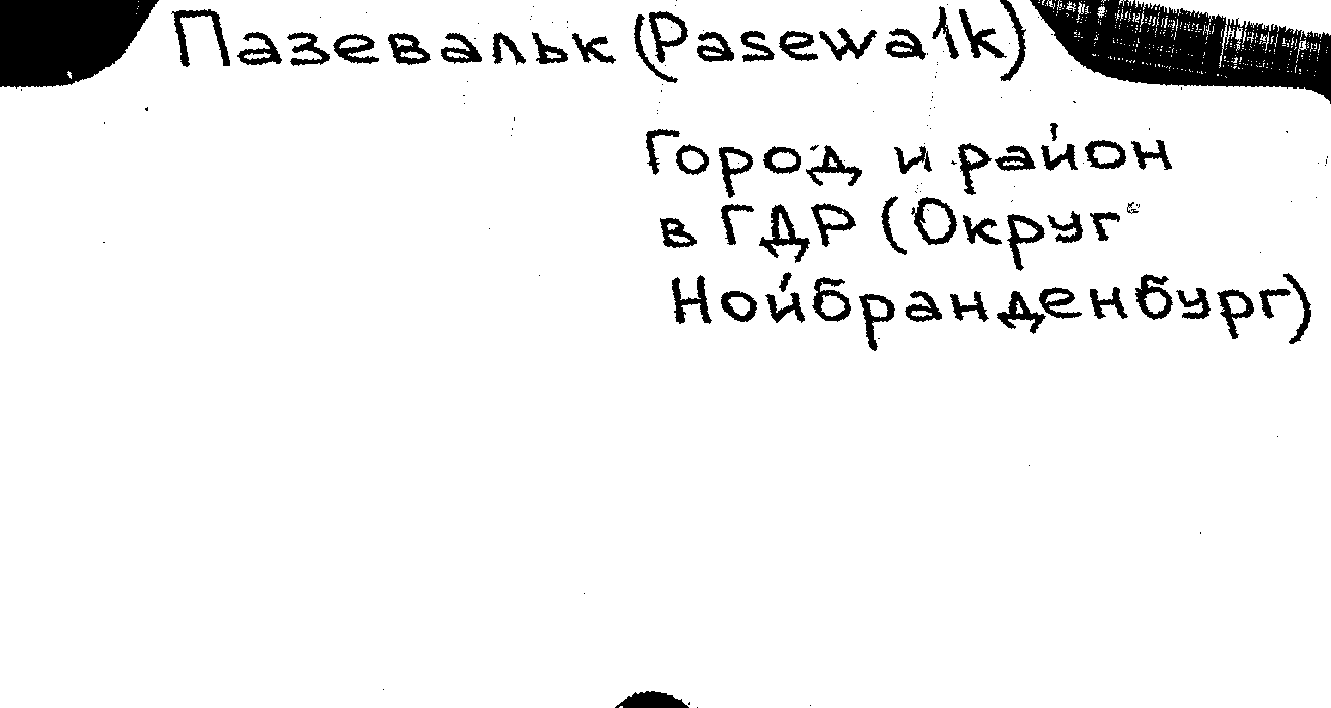 Пазевальк (Pasewalk)
Город и район
в ГДР (Округ
Нойбранденбург)